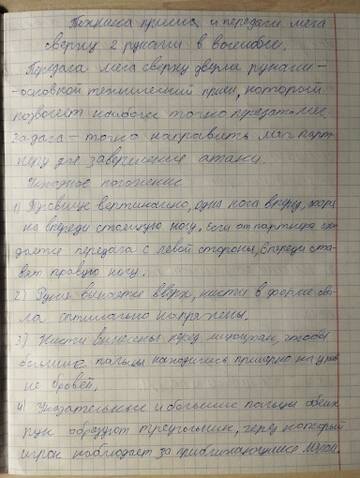 Техника приема и передачи мяча
сверху 2 руками в волейболе.
Передача мяча сверху двумя руками -
- основной технический прием, который
позволяет наиболее точно передать мяч.
Задача - точно направить мяч парт
неру для завершения атаки
Исходное положение
1) Туловище вертикально, одна нога вперед,
на впереди стоящую ногу. Если от партнера ожи
дается передача с левой стороны, впереди ста-
вят правую ногу.
2) Руки выносте вверх, кисти в форме
оптимально напряжены.
3) Кисти вынесены перед лицом, чтобы
большие пальцы находились примерно на уров
не бровей.
4) Указательные и большие пальцы обеих
рук образуют треугольник, через который
игрок наблюдает за приближающимся мячом.